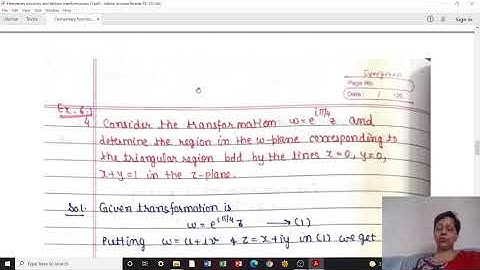 Elementary functions and bilinear transformations (1).pdf - Adobe Acrobat Reader DC (32-bit)
File Edit View Sign Window Help
Home Tools Elementary function...
Sign In
Page No.
Date : / /20
Ex. 6:
4 Consider the transformation w=e^{iπ/4} z and
determine the region in the w-plane corresponding to
the triangular region bdd by the lines x=0, y=0,
x+y=1 in the z-plane.
Sol. Given transformation is
w=e^{iπ/4} z → (1)
Putting w=u+iv & z=x+iy in (1) we get